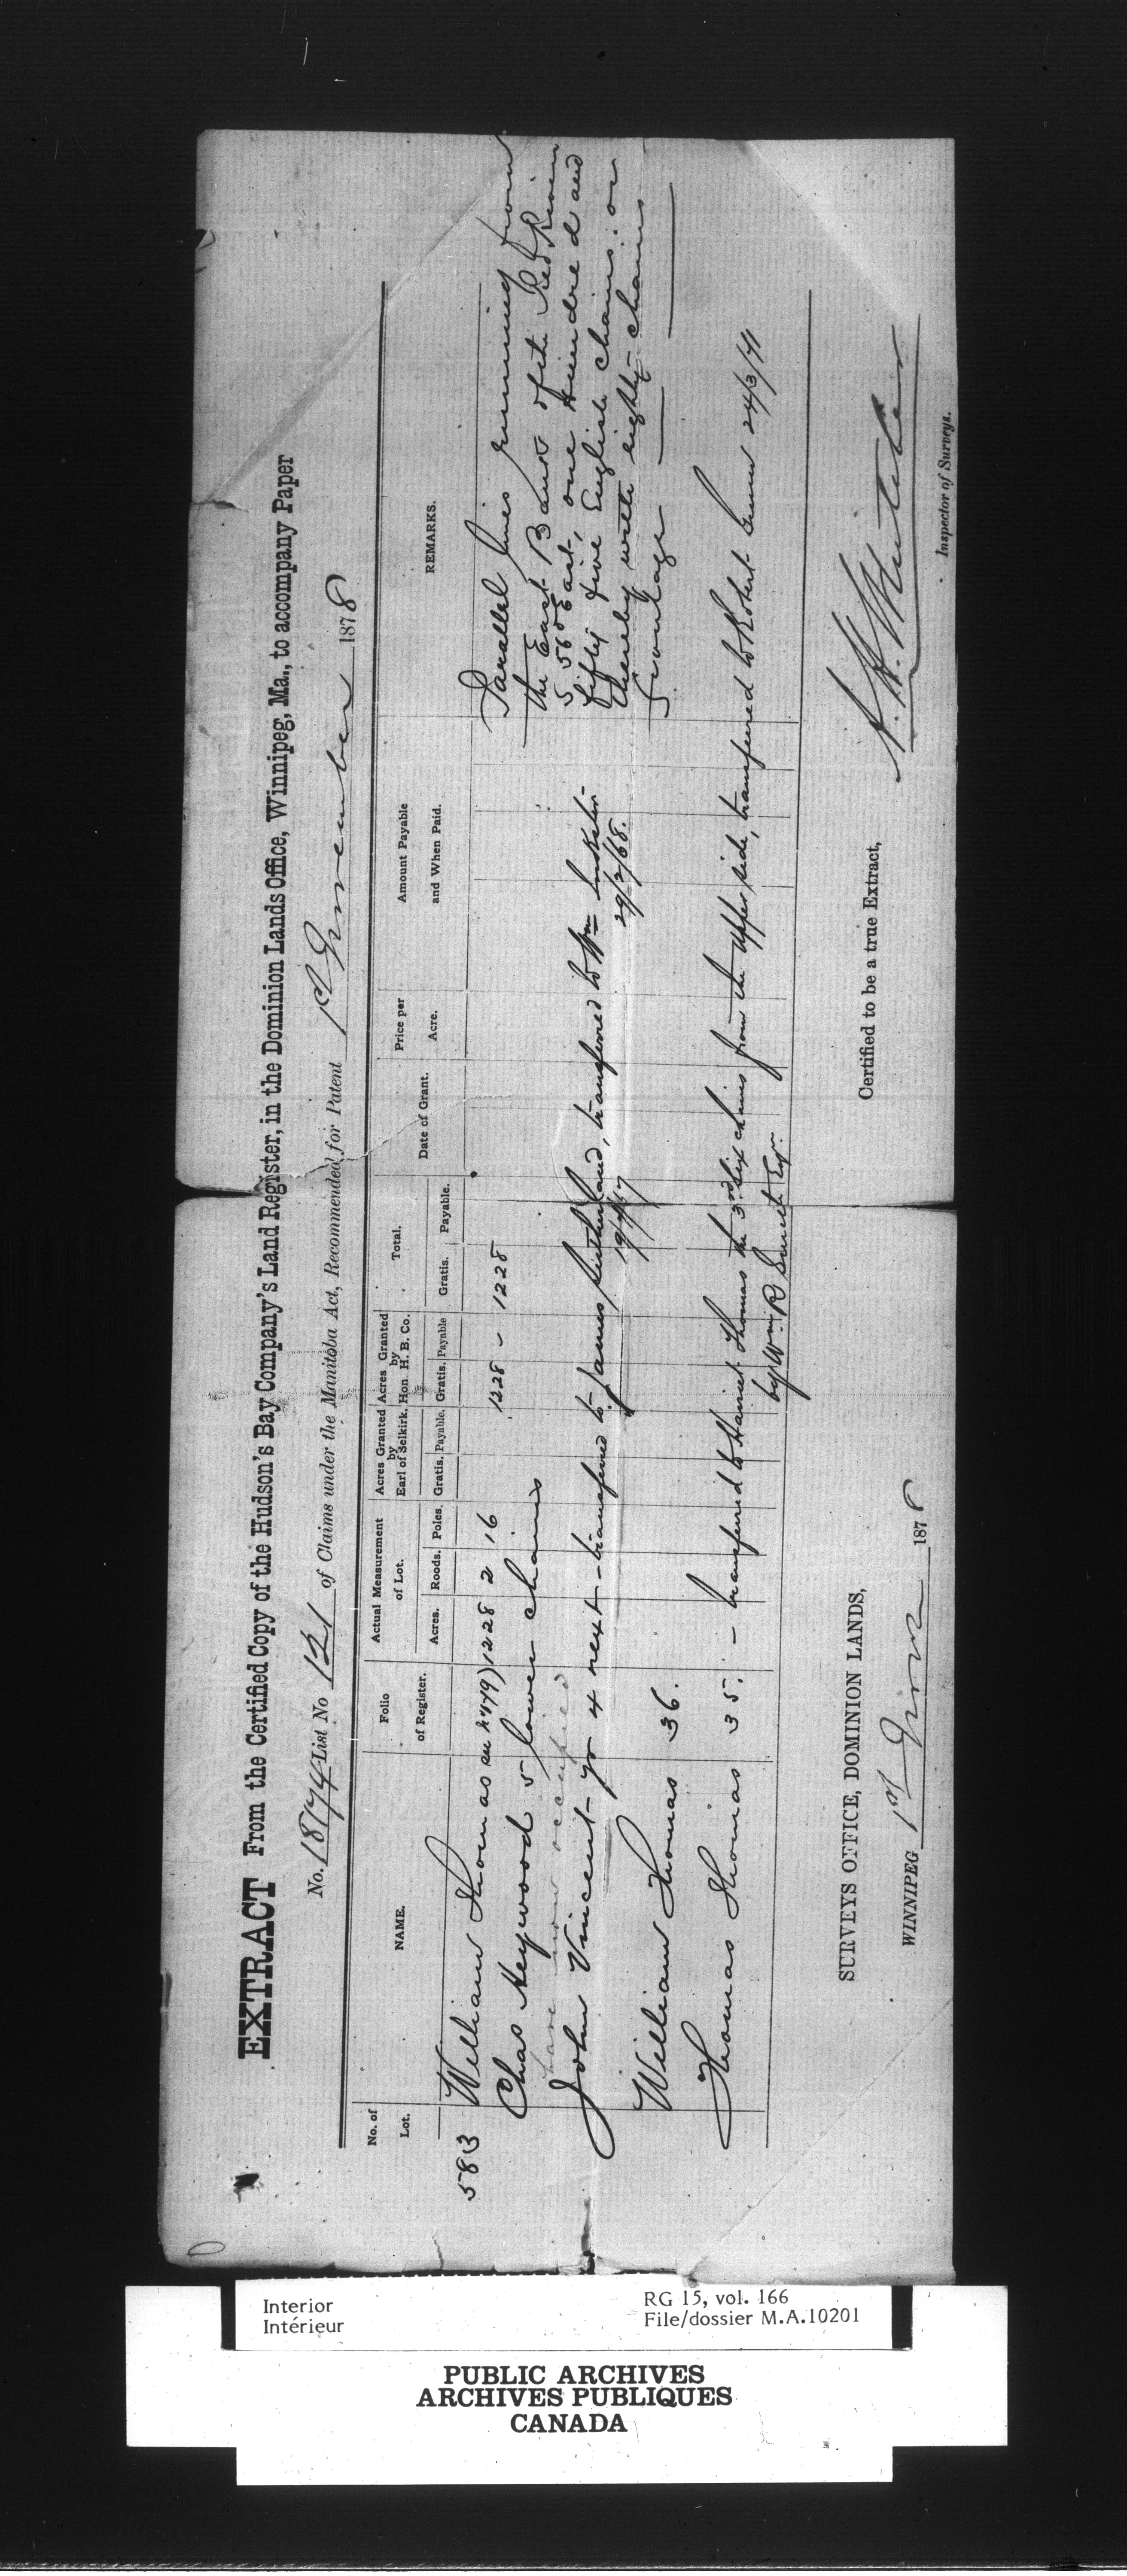 EXTRACT From the Certified Copy of the Hudson's Bay Company's Land Register, in the Dominion Lands Office, Winnipeg, Ma., to accompany Paper
No. 1874 List No 121 of Claims under the Manitoba Act, Recommended for Patent 1st November 1878
No. of Lot.
NAME.
Folio of Register.
Actual Measurement of Lot.
Acres. Roods. Poles.
Acres Granted by Earl of Selkirk.
Gratis. Payable.
Acres Granted by Hon H. B. Co.
Gratis. Payable
Total.
Gratis. Payable.
Date of Grant.
Price per Acre.
Amount Payable and When Paid.
REMARKS.
583 William Thomas 1228 2 16 1228 - 1228
Parallel lines running from
the East Bank of the Red River
S 56° East, one hundred and
fifty five English chains or
thereby with eighty chains
frontage
Chas Heywood 5 lower chains
have now occupied
John Vincent 4 next - transferred to James Sutherland, transferred to Wm Inkster
29/2/68.
William Thomas 36.
Thomas Thomas 35. - transferred to Harriet Thomas the 3rd six chains from the Upper side, transferred to Robert Gunn 24/3/71
by Wm R Smith Esqr.
SURVEYS OFFICE, DOMINION LANDS,
WINNIPEG 1st Novr 1878
Certified to be a true Extract,
Inspector of Surveys.
Interior
Intérieur
RG 15, vol. 166
File/dossier M.A.10201
PUBLIC ARCHIVES
ARCHIVES PUBLIQUES
CANADA